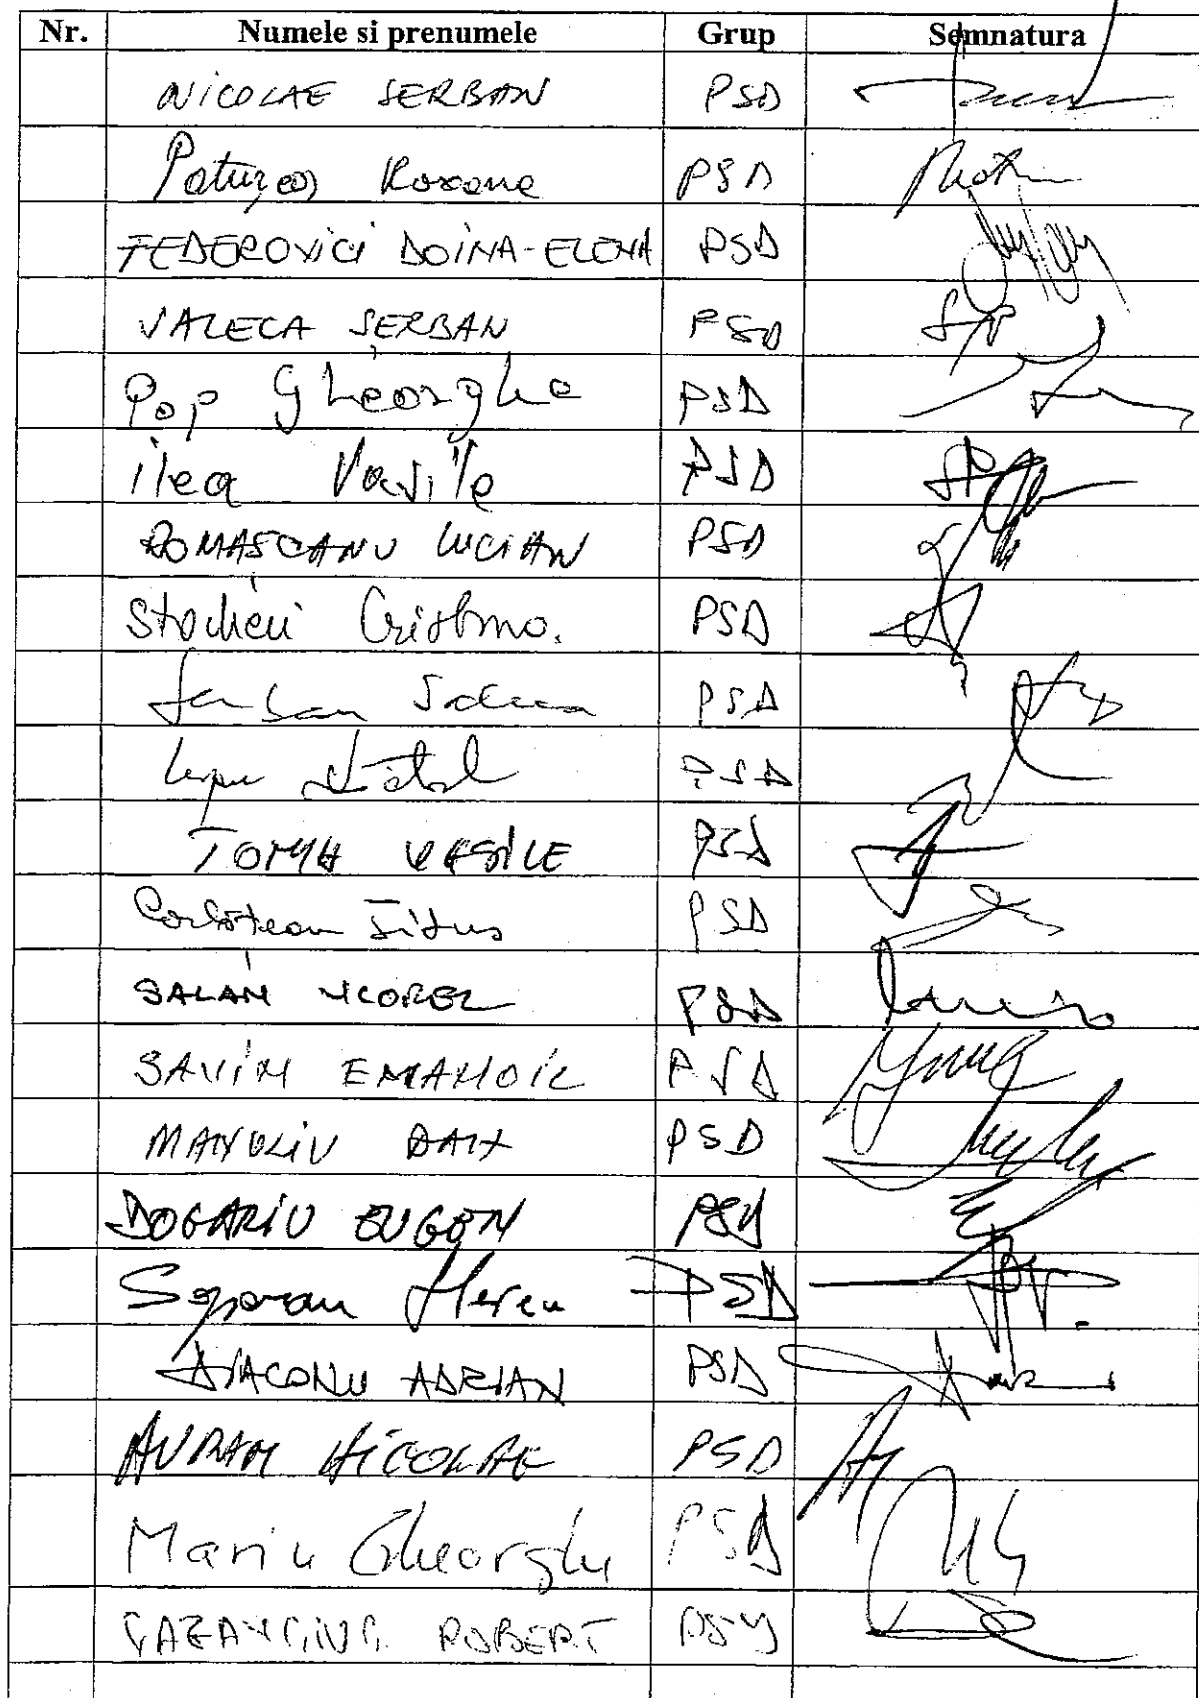 Nr. Numele si prenumele Grup Semnatura
NICOLAE SERBAN PSD
Paturcă Roxana PSD
FEDEROVICI DOINA-ELENA PSD
VALECA ȘERBAN PSD
Pop Gheorghe PSD
ilea Vasile PSD
ROMASCANU LUCIAN PSD
Stocheci Cristina. PSD
PSD
Lupu PSD
TOMA VASILE PSD
Corlățean Titus PSD
SALAN VIOREL PSD
SAVIN EMANOIL PSD
MANOLIU DAN PSD
DOGARIU EUGEN PSD
PSD
DIACONU ADRIAN PSD
AVRAM NICOLAE PSD
Marin Gheorghe PSD
CAZANCIUC ROBERT PSD